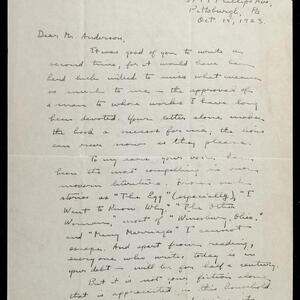 Phillips Ave,
Pittsburgh, Pa
Oct. 15, 1923.
Dear Mr. Anderson,
It was good of you to write a
second time, for it would have been
hard luck indeed to miss what means
so much to me – the approval of
a man to whose works I have long
been devoted. Your letter alone makes
the book a success for me; the
can now as they please.
To my sense your voice has
been the most compelling in our
modern literature. From such
stories as "The Egg" (especially), "I
Want to Know Why," "The Other
Woman," most of "Winesburg, Ohio,"
and "Many Marriages" I cannot
escape. And apart from reading,
everyone who writes today is in
your debt – will be for half a century.
But it is not your fiction alone
that is appreciated in this household